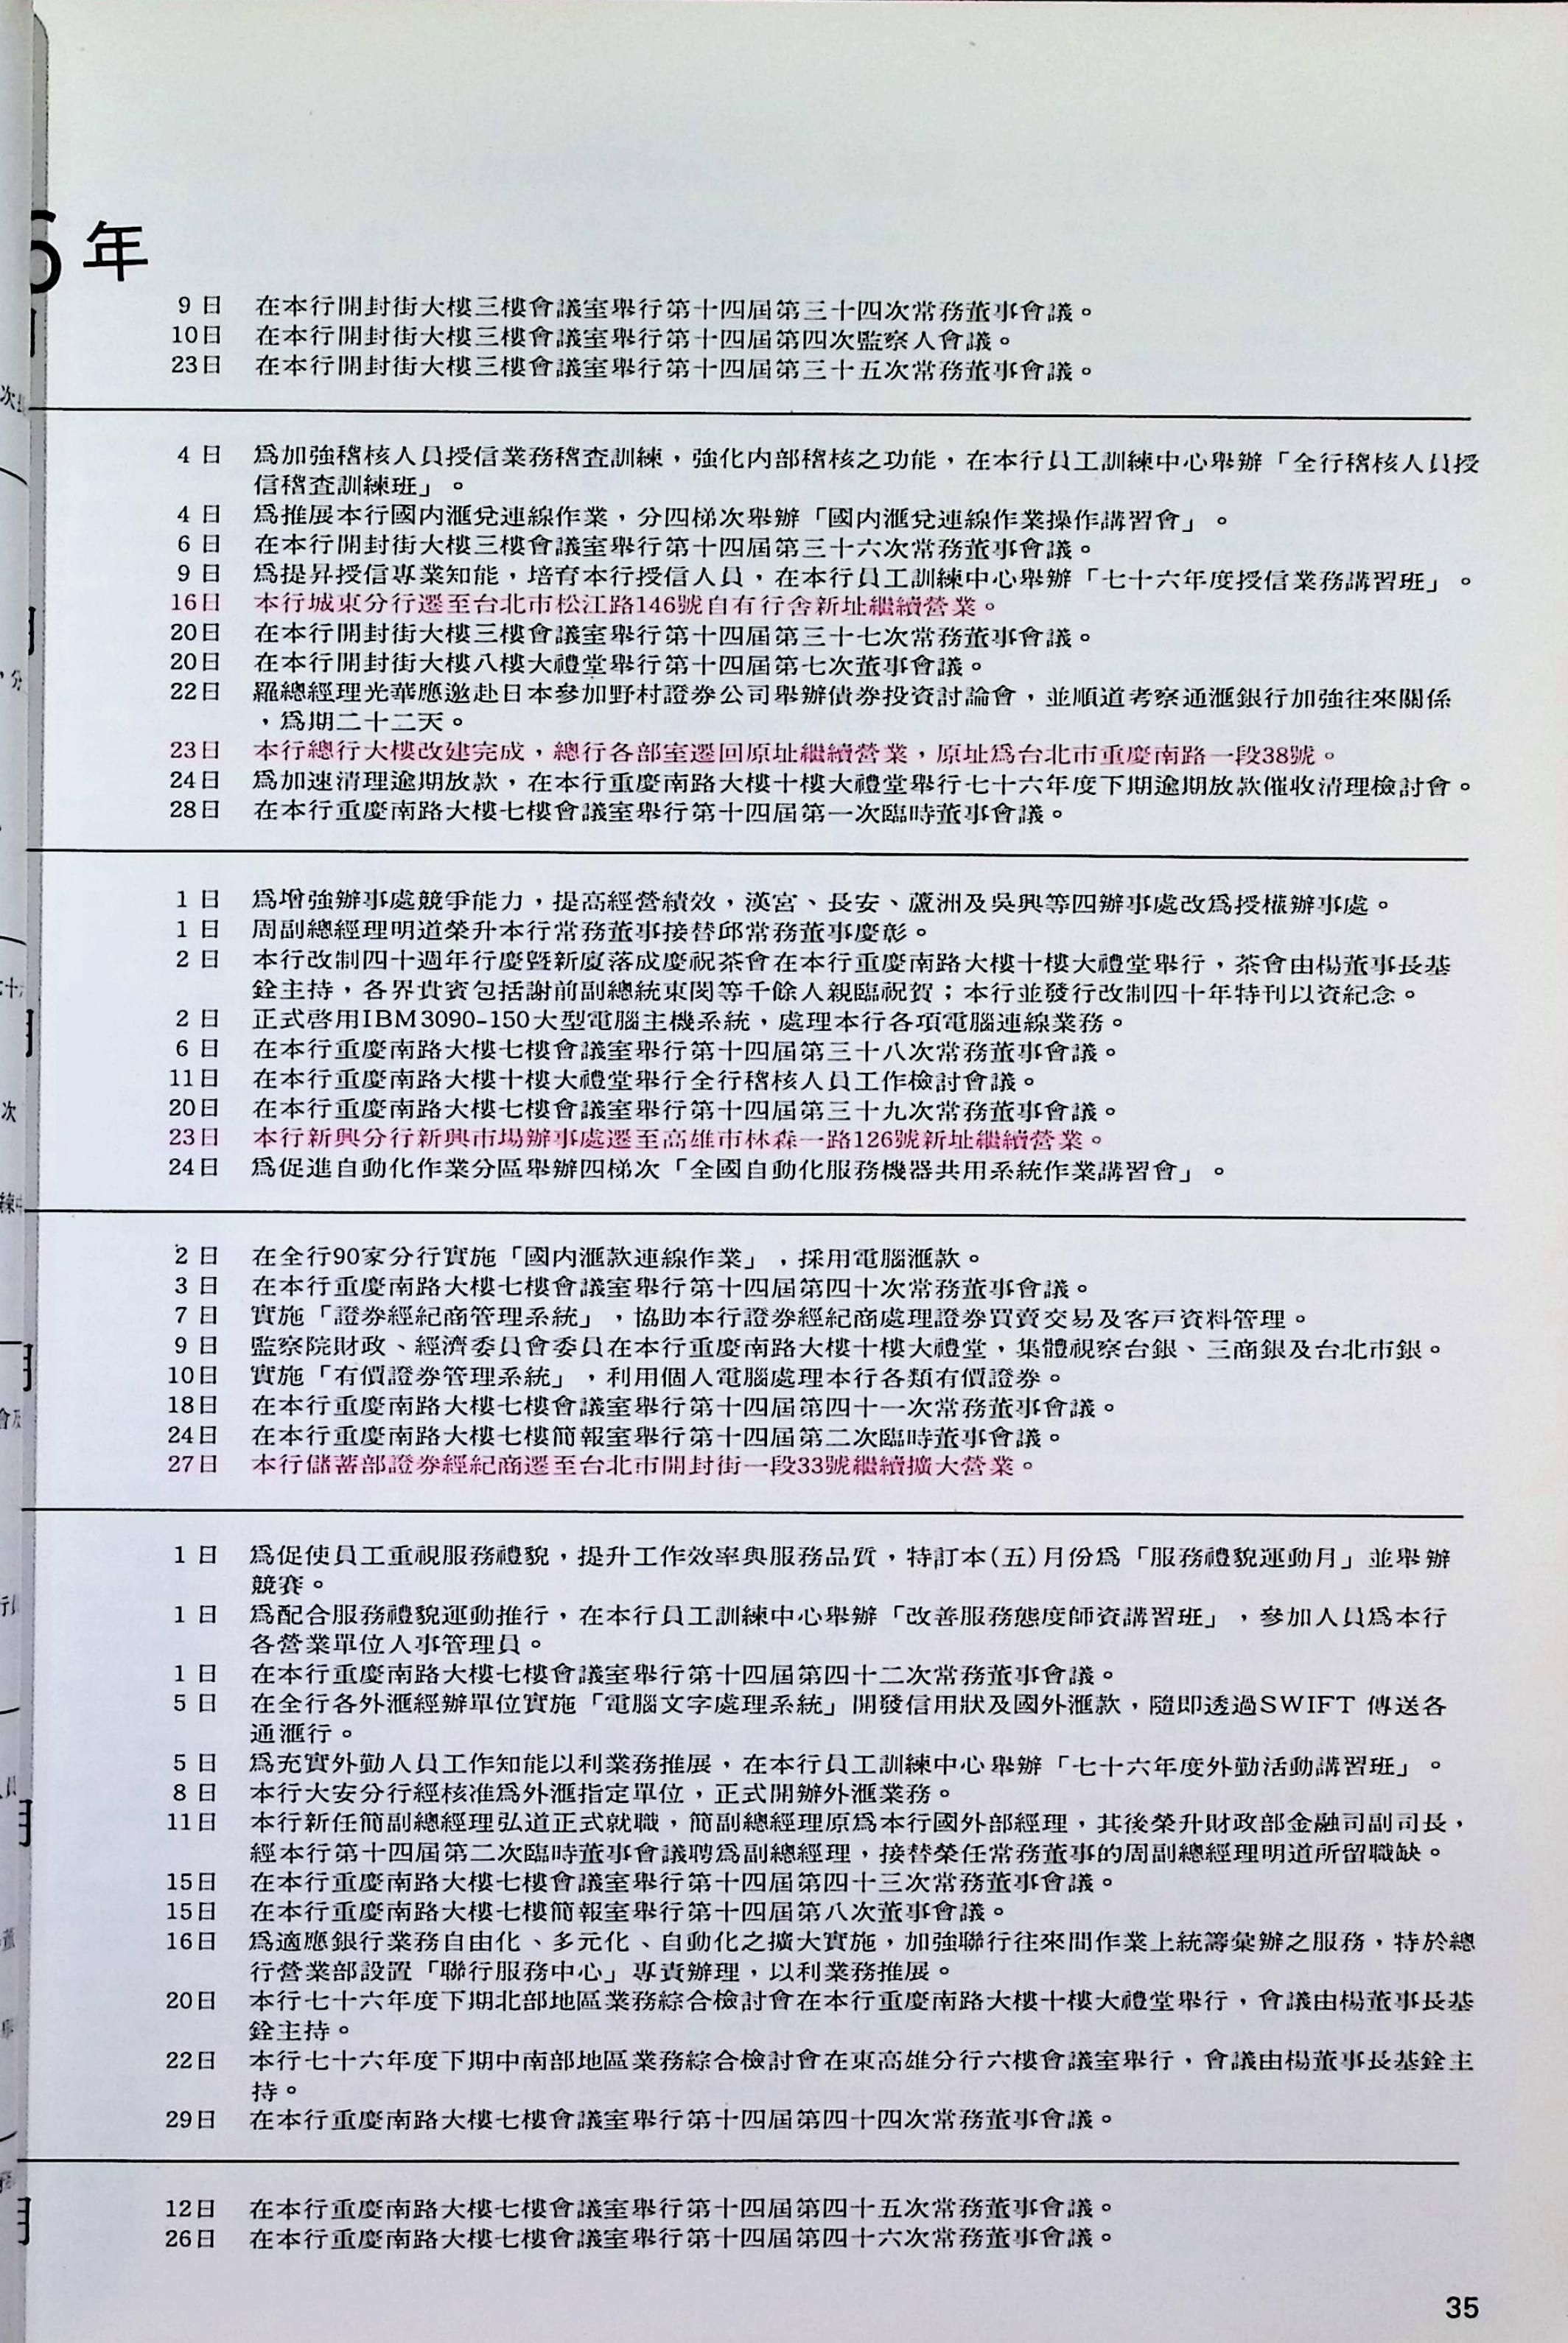 6年
9日 在本行開封街大樓三樓會議室舉行第十四屆第三十四次常務董事會議。
10日 在本行開封街大樓三樓會議室舉行第十四屆第四次監察人會議。
23日 在本行開封街大樓三樓會議室舉行第十四屆第三十五次常務董事會議。
4日 爲加強稽核人員授信業務稽查訓練，強化內部稽核之功能，在本行員工訓練中心舉辦「全行稽核人員授
信稽查訓練班」。
4日 爲推展本行國內滙兌連線作業，分四梯次舉辦「國內滙兌連線作業操作講習會」。
6日 在本行開封街大樓三樓會議室舉行第十四屆第三十六次常務董事會議。
9日 爲提昇授信專業知能，培育本行授信人員，在本行員工訓練中心舉辦「七十六年度授信業務講習班」。
16日 本行城東分行遷至台北市松江路146號自有行舍新址繼續營業。
20日 在本行開封街大樓三樓會議室舉行第十四屆第三十七次常務董事會議。
20日 在本行開封街大樓八樓大禮堂舉行第十四屆第七次董事會議。
22日 羅總經理光華應邀赴日本參加野村證券公司舉辦債券投資討論會，並順道考察通滙銀行加強往來關係
，爲期二十二天。
23日 本行總行大樓改建完成，總行各部室遷回原址繼續營業，原址爲台北市重慶南路一段38號。
24日 爲加速清理逾期放款，在本行重慶南路大樓十樓大禮堂舉行七十六年度下期逾期放款催收清理檢討會。
28日 在本行重慶南路大樓七樓會議室舉行第十四屆第一次臨時董事會議。
1日 爲增強辦事處競爭能力，提高經營績效，漢宮、長安、蘆洲及吳興等四辦事處改爲授權辦事處。
1日 周副總經理明道榮升本行常務董事接替邱常務董事慶彰。
2日 本行改制四十週年行慶暨新廈落成慶祝茶會在本行重慶南路大樓十樓大禮堂舉行，茶會由楊董事長基
銓主持，各界貴賓包括謝前副總統東閔等千餘人親臨祝賀；本行並發行改制四十年特刊以資紀念。
2日 正式啓用IBM3090-150大型電腦主機系統，處理本行各項電腦連線業務。
6日 在本行重慶南路大樓七樓會議室舉行第十四屆第三十八次常務董事會議。
11日 在本行重慶南路大樓十樓大禮堂舉行全行稽核人員工作檢討會議。
20日 在本行重慶南路大樓七樓會議室舉行第十四屆第三十九次常務董事會議。
23日 本行新興分行新興市場辦事處遷至高雄市林森一路126號新址繼續營業。
24日 爲促進自動化作業分區舉辦四梯次「全國自動化服務機器共用系統作業講習會」。
2日 在全行90家分行實施「國內滙款連線作業」，採用電腦滙款。
3日 在本行重慶南路大樓七樓會議室舉行第十四屆第四十次常務董事會議。
7日 實施「證券經紀商管理系統」，協助本行證券經紀商處理證券買賣交易及客戶資料管理。
9日 監察院財政、經濟委員會委員在本行重慶南路大樓十樓大禮堂，集體視察台銀、三商銀及台北市銀。
10日 實施「有價證券管理系統」，利用個人電腦處理本行各類有價證券。
18日 在本行重慶南路大樓七樓會議室舉行第十四屆第四十一次常務董事會議。
24日 在本行重慶南路大樓七樓簡報室舉行第十四屆第二次臨時董事會議。
27日 本行儲蓄部證券經紀商遷至台北市開封街一段33號繼續擴大營業。
1日 爲促使員工重視服務禮貌，提升工作效率與服務品質，特訂本(五)月份爲「服務禮貌運動月」並舉辦
競賽。
1日 爲配合服務禮貌運動推行，在本行員工訓練中心舉辦「改善服務態度師資講習班」，參加人員爲本行
各營業單位人事管理員。
1日 在本行重慶南路大樓七樓會議室舉行第十四屆第四十二次常務董事會議。
5日 在全行各外滙經辦單位實施「電腦文字處理系統」開發信用狀及國外滙款，隨即透過SWIFT 傳送各
通滙行。
5日 爲充實外勤人員工作知能以利業務推展，在本行員工訓練中心舉辦「七十六年度外勤活動講習班」。
8日 本行大安分行經核准爲外滙指定單位，正式開辦外滙業務。
11日 本行新任簡副總經理弘道正式就職，簡副總經理原爲本行國外部經理，其後榮升財政部金融司副司長，
經本行第十四屆第二次臨時董事會議聘爲副總經理，接替榮任常務董事的周副總經理明道所留職缺。
15日 在本行重慶南路大樓七樓會議室舉行第十四屆第四十三次常務董事會議。
15日 在本行重慶南路大樓七樓簡報室舉行第十四屆第八次董事會議。
16日 爲適應銀行業務自由化、多元化、自動化之擴大實施，加強聯行往來間作業上統籌彙辦之服務，特於總
行營業部設置「聯行服務中心」專責辦理，以利業務推展。
20日 本行七十六年度下期北部地區業務綜合檢討會在本行重慶南路大樓十樓大禮堂舉行，會議由楊董事長基
銓主持。
22日 本行七十六年度下期中南部地區業務綜合檢討會在東高雄分行六樓會議室舉行，會議由楊董事長基銓主
持。
29日 在本行重慶南路大樓七樓會議室舉行第十四屆第四十四次常務董事會議。
12日 在本行重慶南路大樓七樓會議室舉行第十四屆第四十五次常務董事會議。
26日 在本行重慶南路大樓七樓會議室舉行第十四屆第四十六次常務董事會議。
35